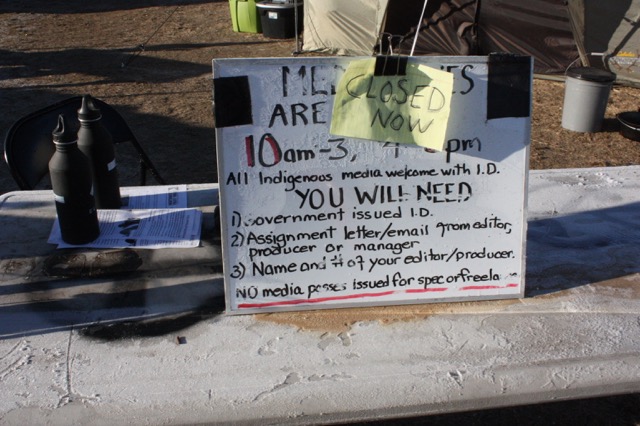 CLOSED
NOW
ARE
10am-3, pm
All Indigenous media welcome with I.D.
YOU WILL NEED
1) Government issued I.D.
2) Assignment letter/email from editor,
producer or manager
3) Name and # of your editor/producer.
NO media passes issued for spec or